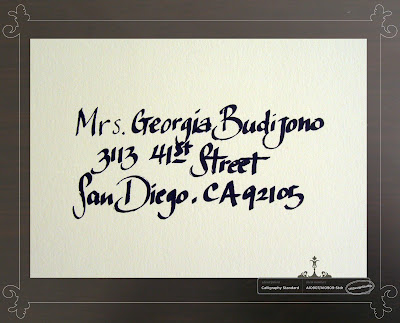 Mrs. Georgia Budijono
3113 41st Street
San Diego. CA 92105
Calligraphy Standard